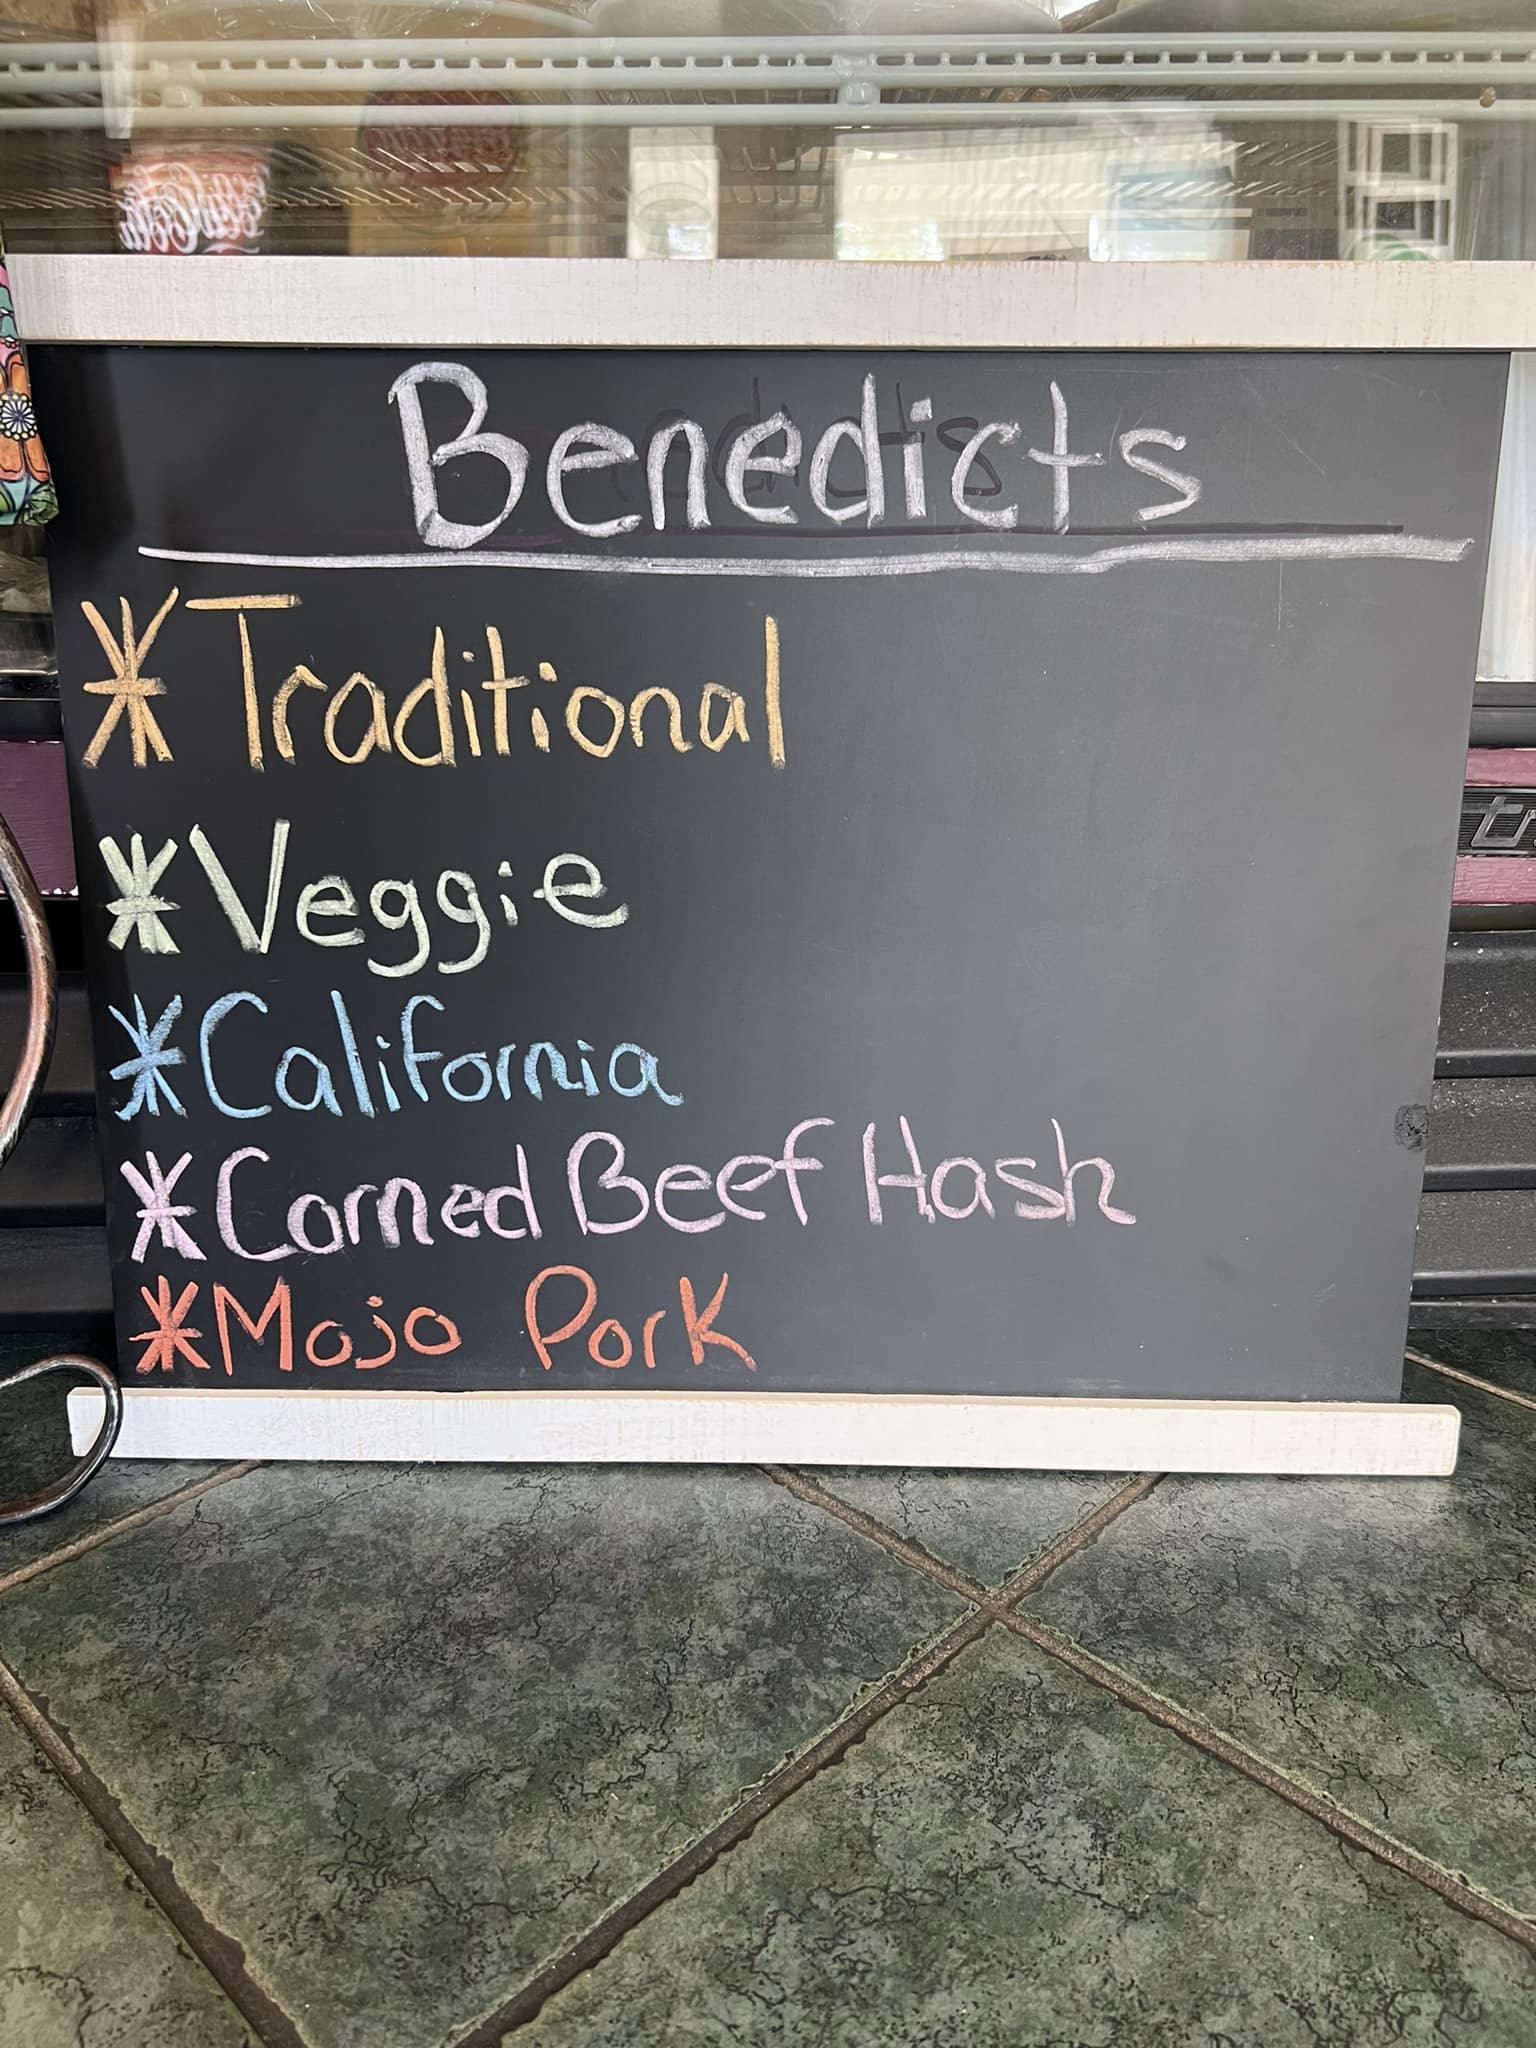 Coca-Cola
Benedicts
*Traditional
*Veggie
*California
*Corned Beef Hash
*Mojo Pork